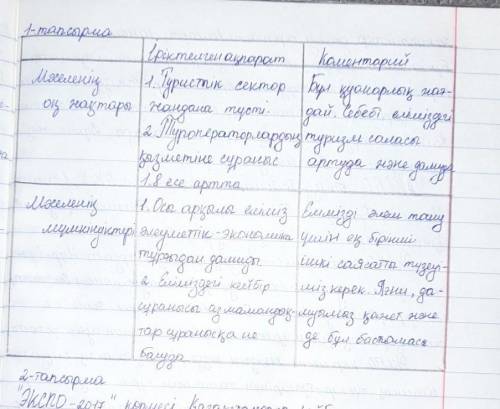 1-тапсырма
Іріктелген ақпарат
Коменторий
Мәселенің
оң жақтары
1. Туристік сектор
жандана түсті.
2. Туроператорлардың
қызметіне сұраныс
1.8 есе артта
Бұл қуанарлық жағ-
дай. Себебі еліміздегі
туризм саласы
артуда және дамуда
Мәселенің
мүмкіндіктері
1. Осы арқылы еліміз
әлеуметтік-экономика
тұрғыдан дамиды
2 Еліміздегі кейбір
сұранысы аз мамандық-
тар сұранысқа ие
болуда
Елімізді әлем тану
үшін ең бірінші
ішкі саясатты түзеу-
міз керек. Яғни, да-
муымыз қажет және
де бұл бастамасы
2-тапсырма
"ЭКСПО-2017" көрмесі